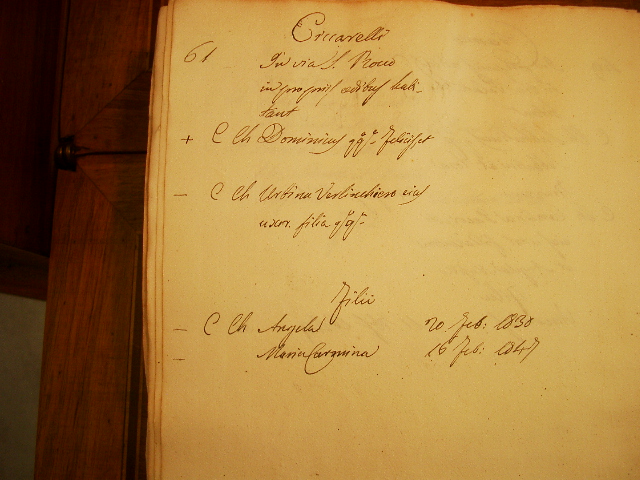 Ciccarelli
61 In via S. Rocco
in propriis ædibus habi-
tant
+ C Ch Dominicus qq.m Felicis et
– C Ch Urbina Verlinchiero eius
uxor. filia qq.m
Filii
– C Ch Angela 20 Feb: 1838
– Maria Carmina 16 Feb: 1847